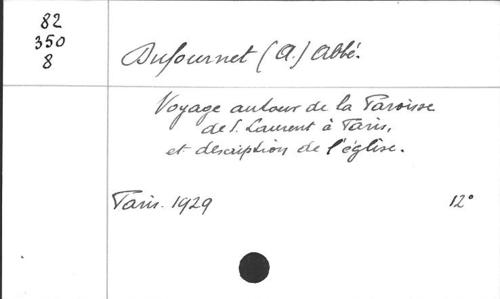 82
350
8
Dufournet (A.) Abbé.
Voyage autour de la Paroisse
de S. Laurent à Paris,
et description de l'église.
Paris. 1929
12°